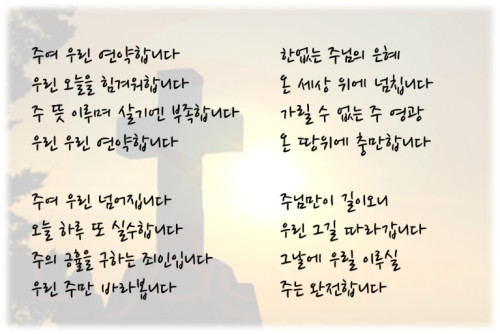 주여 우린 연약합니다
우린 오늘을 힘겨워합니다
주 뜻 이루며 살기엔 부족합니다
우린 우린 연약합니다
주여 우린 넘어집니다
오늘 하루 또 실수합니다
주의 긍휼을 구하는 죄인입니다
우린 주만 바라봅니다
한없는 주님의 은혜
온 세상 위에 넘칩니다
가릴 수 없는 주 영광
온 땅위에 충만합니다
주님만이 길이오니
우린 그길 따라갑니다
그날에 우릴 이루실
주는 완전합니다